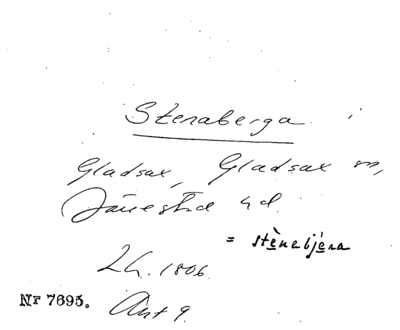 Stenaberga
Gladsax, Gladsax sn,
Järrestad hd.
= stènebjèra
Lh. 1806
Nr 7695. Akt 9.